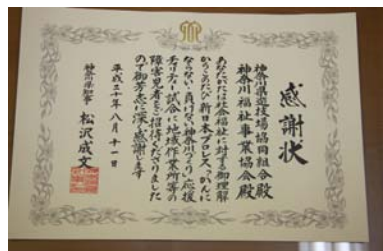 感謝状
神奈川県遊技場協同組合殿
神奈川福祉事業協会殿
あなたがたは社会福祉に対する御理解
からこのたび新日本プロレス
ならない・負けない神奈川づくり応援
チャリティー試合に地域作業所等の
障害児者を招待くださりました
ので御芳志に深く感謝します
平成二十年八月十一日
神奈川県知事 松沢成文